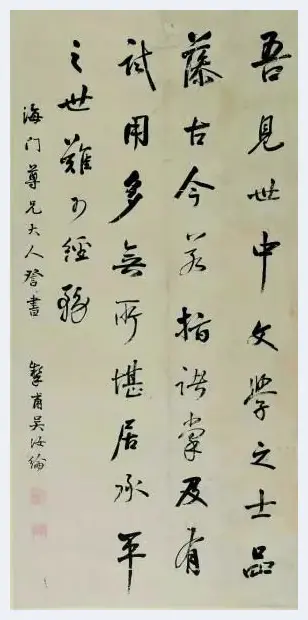 吾見世中文學之士品
藻古今若指諸掌及有
試用多無所堪居承平
之世難可經務
海门尊兄大人督書
摯甫吴汝綸